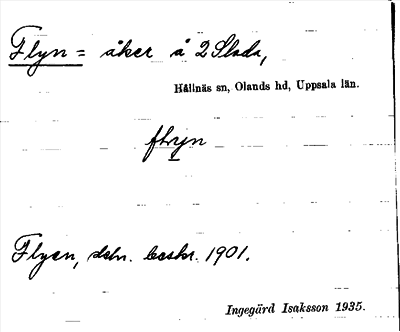 Flyn = åker å 2 Slada,
Hållnäs sn, Olands hd, Uppsala län.
flryn
Flyen, dshr. beskr. 1901.
Ingegärd Isaksson 1935.